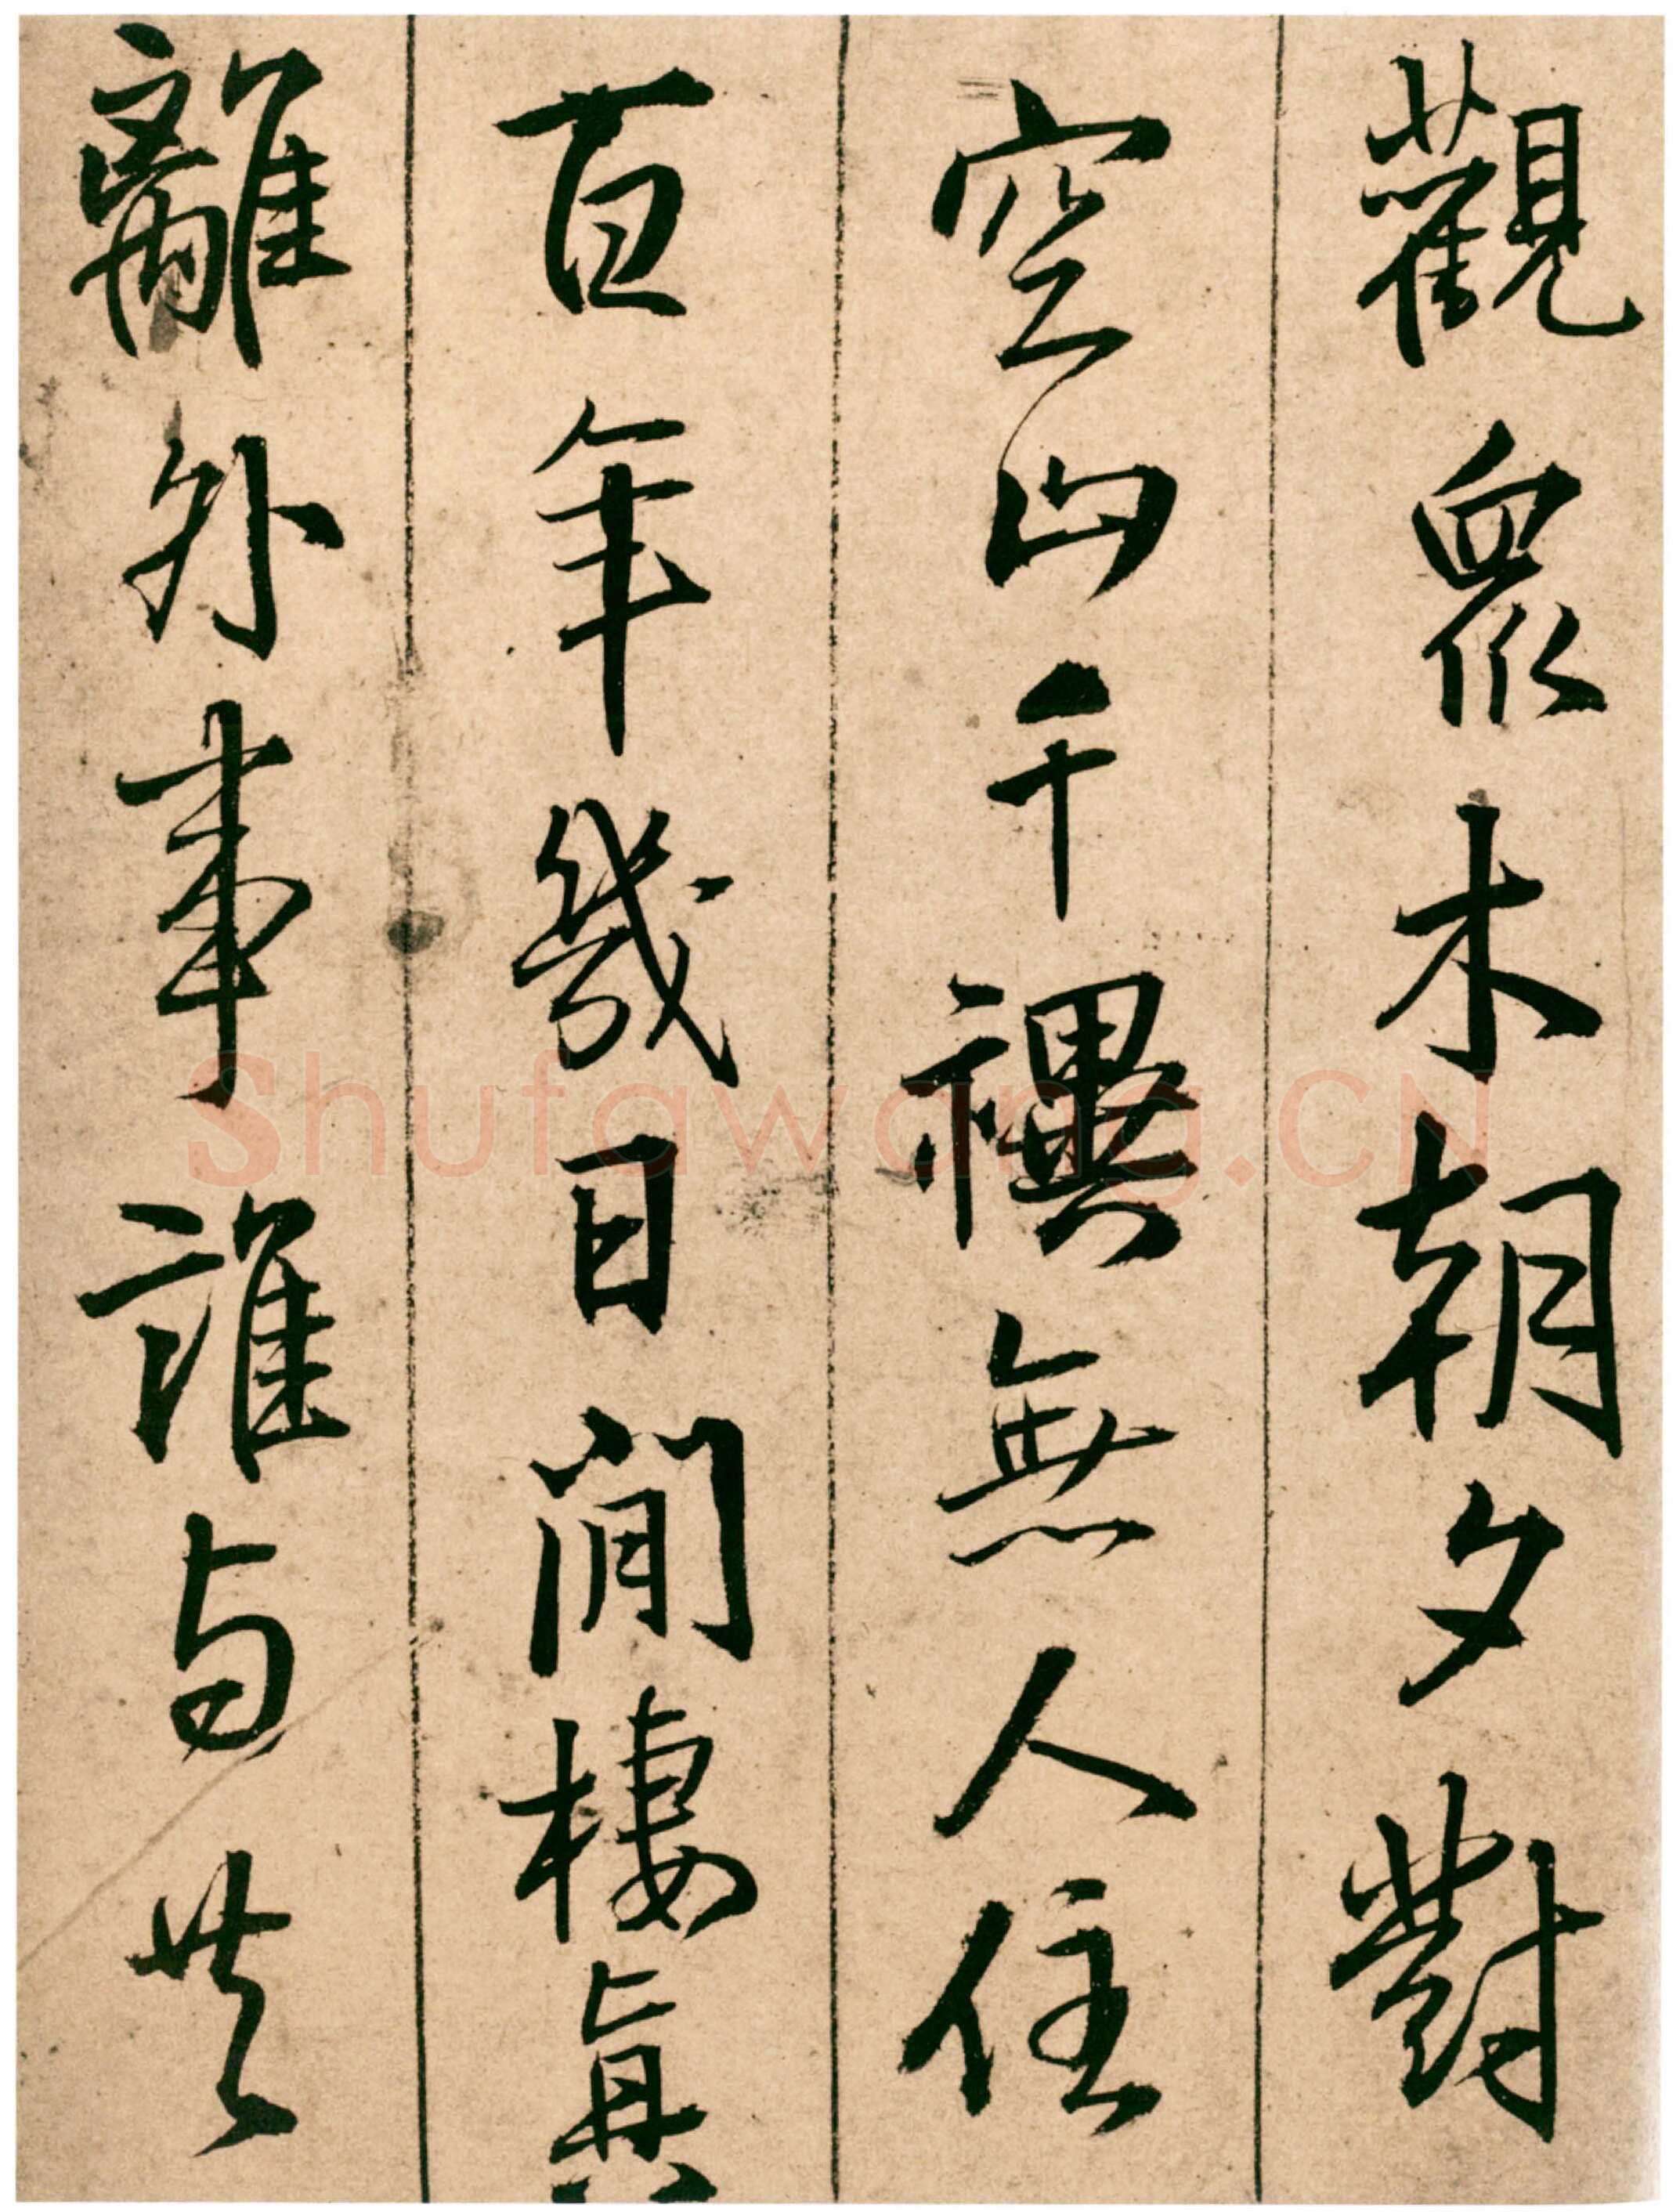 觀眾木朝夕對
空山千禩無人住
百年幾日閒棲真
離外事誰与共
Shufawang.CN